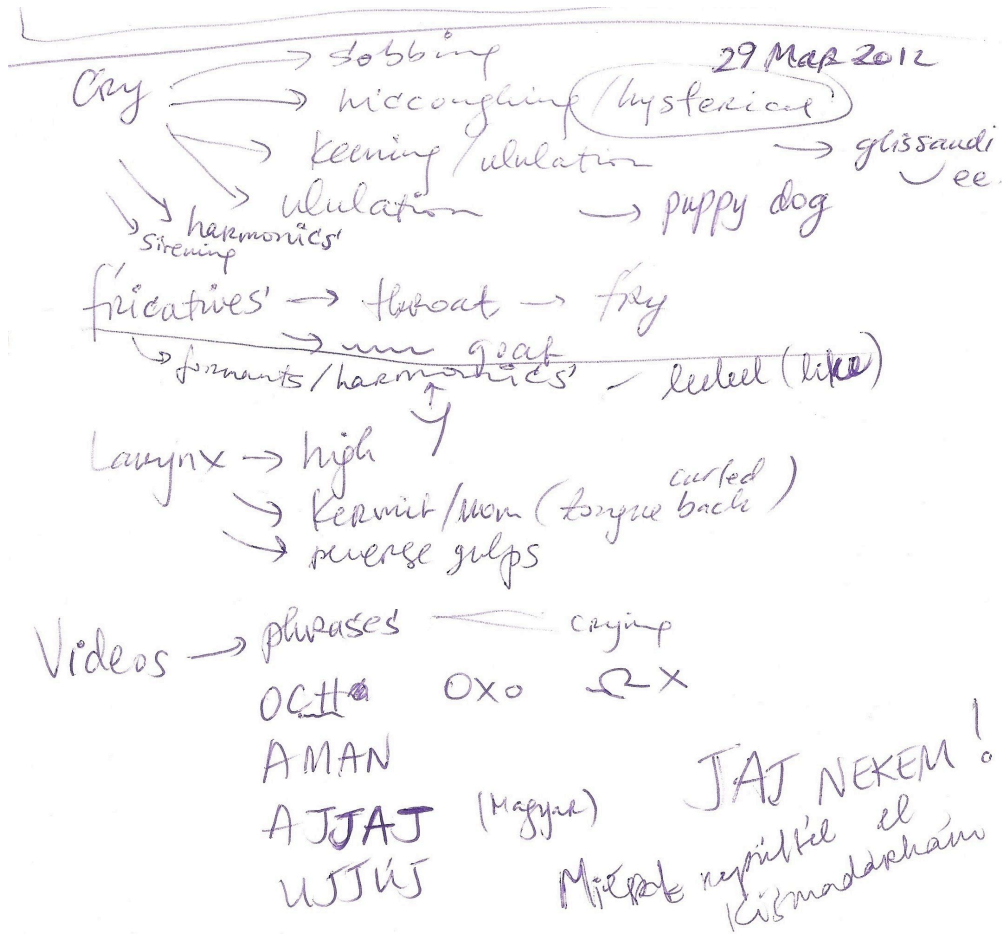 29 MAR 2012
Cry → sobbing
→ hiccoughing / hysterical
→ keening / ululation → glissandi
ee.
→ ululation → puppy dog
→ harmonics
→ sirening
fricatives → throat → fry
→ goat
→ formants / harmonics – (like)
↑
Y
Larynx → high
→ Kermit / Mom (tongue curled back)
→ reverse gulps
Videos → phrases crying
OXO Ω X
AMAN
AJJAJ (Magyar)
UJJÚJ
JAJ NEKEM!
Miért repültél el
Kismadárkám